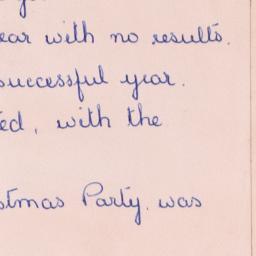 ear with no results.
successful year.
ed, with the
stmas Party. was